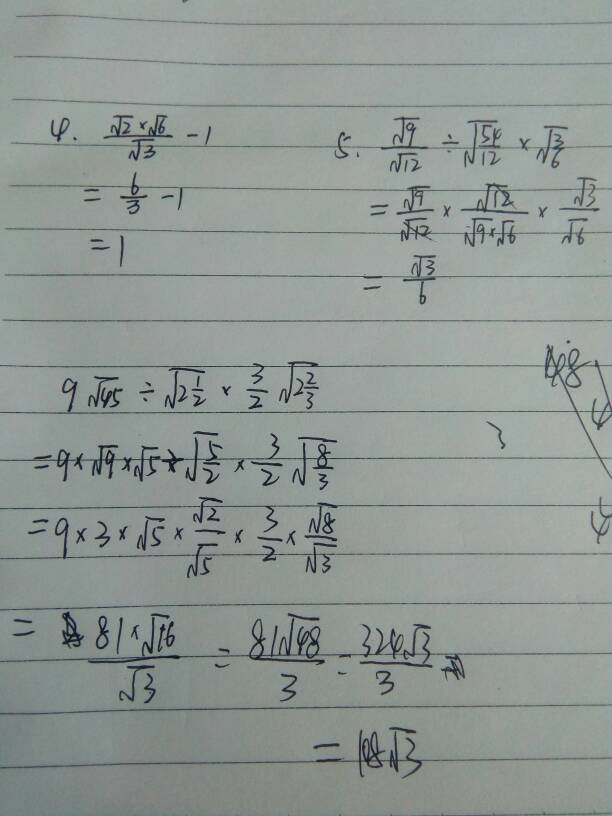 4. √2×√6/√3 - 1
= 6/3 - 1
= 1
5. √9/√12 ÷ √(54/12) × √(3/6)
= √9/√12 × √12/(√9×√6) × √3/√6
= √3/6
9√45 ÷ √(2 1/2) × 3/2 √(2 2/3)
= 9×√9×√5 ÷ √(5/2) × 3/2 √(8/3)
= 9×3×√5 × √2/√5 × 3/2 × √8/√3
= 81×√16/√3 = 81√48/3 = 324√3/3
= 108√3
3
4
4